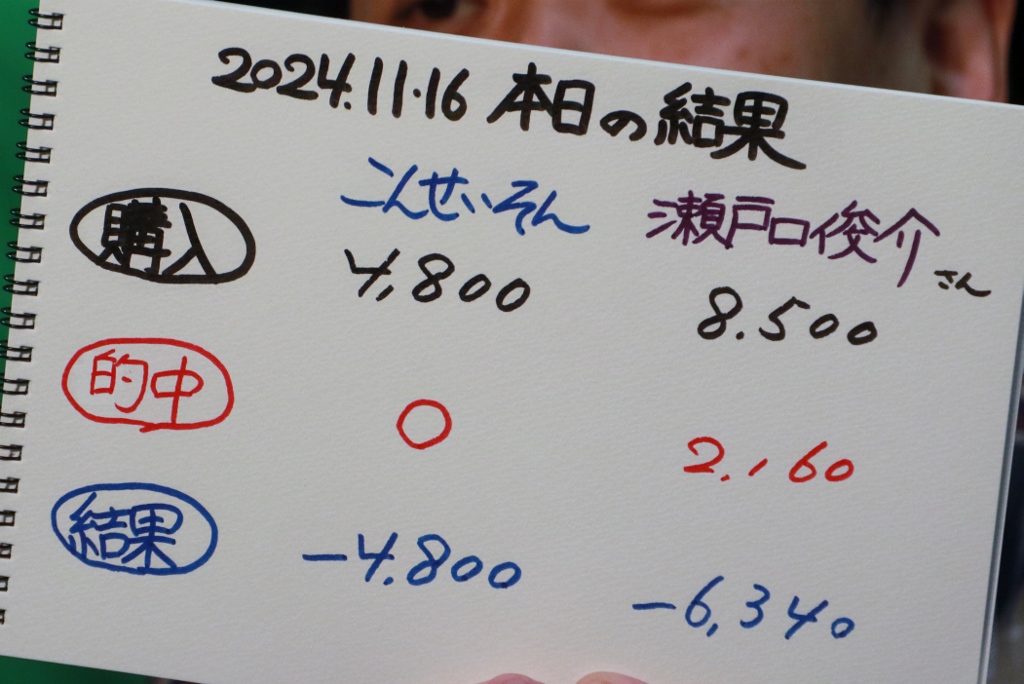 2024.11.16 本日の結果
こんせいそん 瀬戸口俊介さん
購入 4,800 8.500
的中 0 2,160
結果 -4.800 -6,340